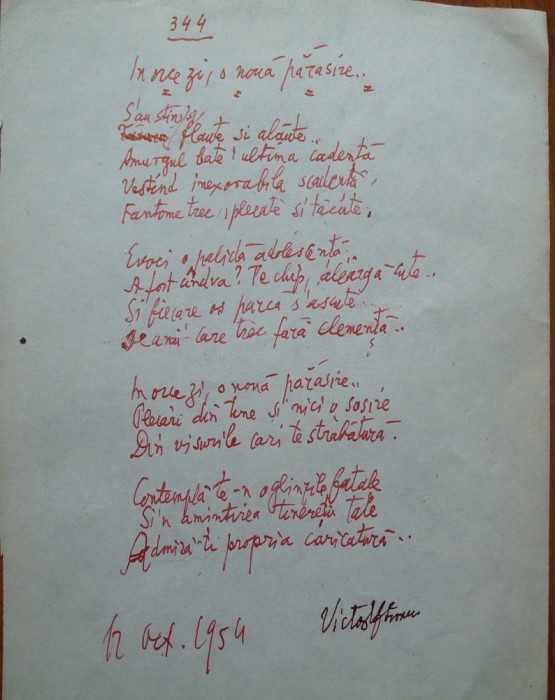 344
In orce zi, o nouă părăsire..
S'au stins
flaute si alăute..
Amurgul bate ultima cadență
Vestind inexorabila scadență,
Fantome trec, plecate si tăcute.
Evoci o palidă adolescență,
A fost cândva? Pe chip, aleargă cute..
Si fiecare os parcă s'ascute
De anii care trec fără clemență..
In orce zi, o nouă părăsire..
Plecări din tine și nici o sosire
Din visurile cari te străbătură.
Contemplă-te-n oglinzile fatale
Si'n amintirea tinereții tale
Admiră-ti propria caricatură..
12 Oct. 1954
Victor Eftimiu